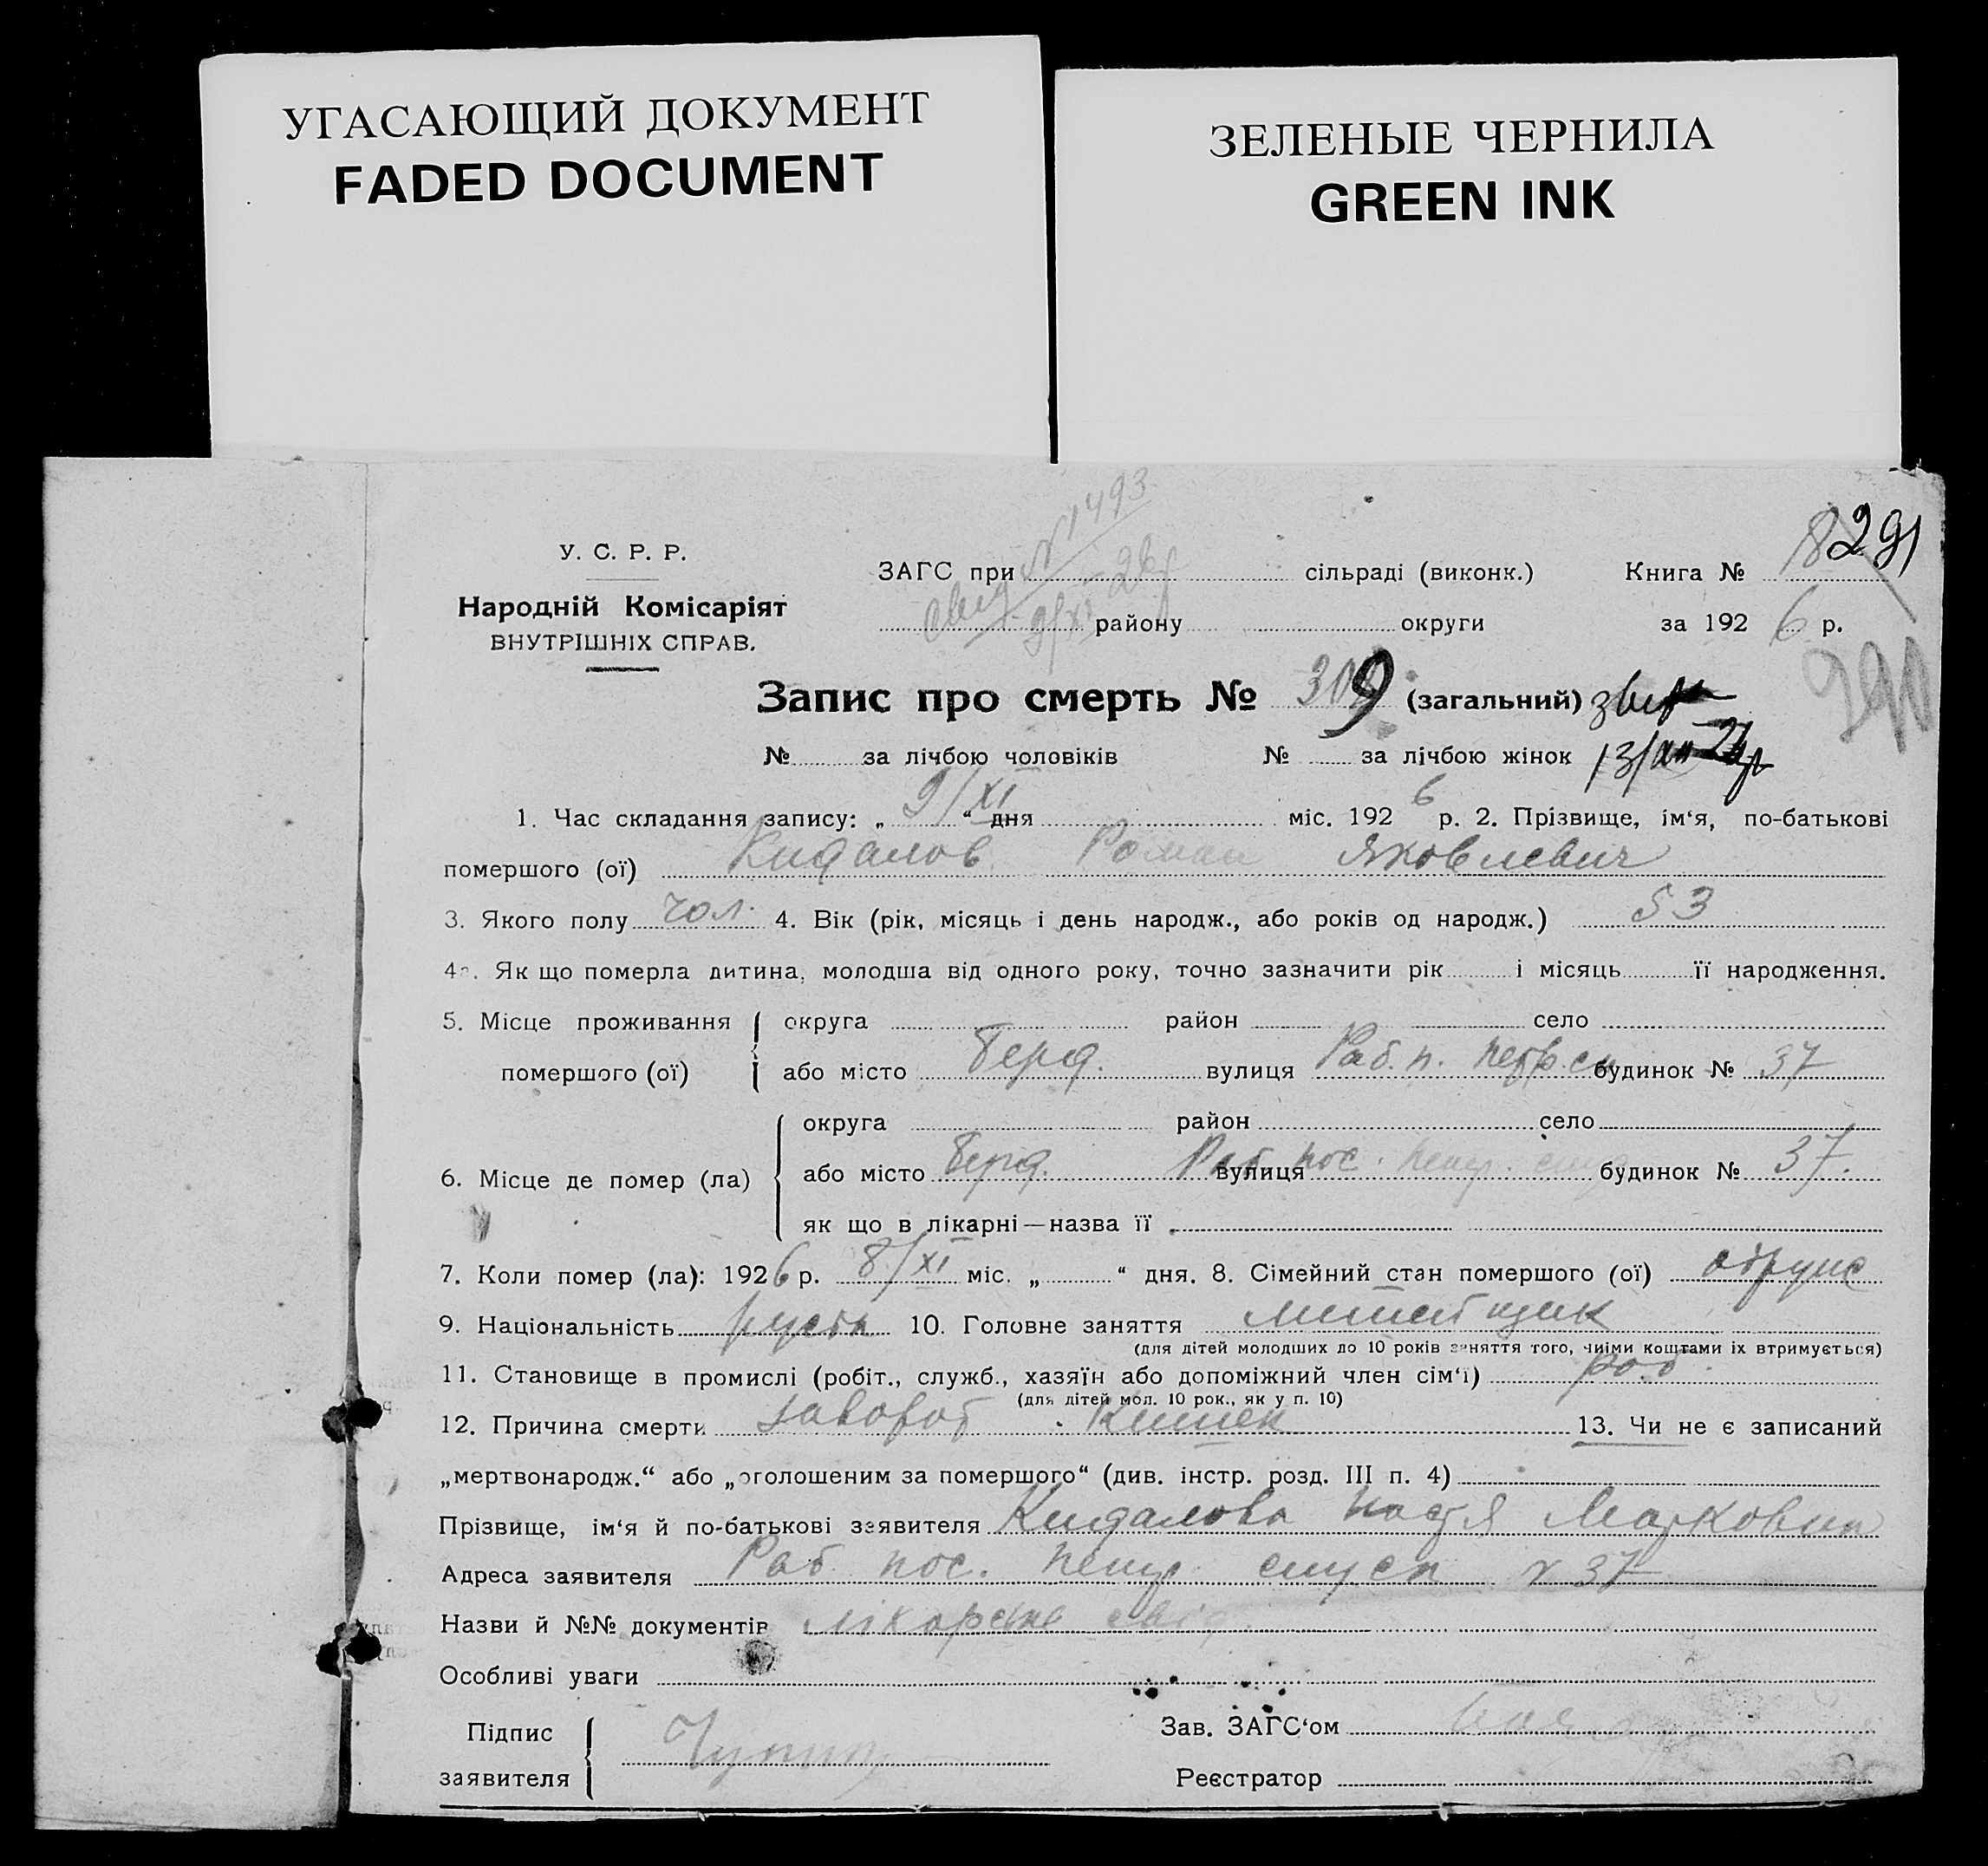 УГАСАЮЩИЙ ДОКУМЕНТ
FADED DOCUMENT
ЗЕЛЕНЫЕ ЧЕРНИЛА
GREEN INK
№ 1493
У. С. Р. Р.
Народній Комісаріят
ВНУТРІШНІХ СПРАВ.
ЗАГС при сільраді (виконк.) Книга № 8 291
району округи за 192 6 р.
290
Запис про смерть № 309 (загальний)
№ за лічбою чоловіків № за лічбою жінок
1. Час складання запису: „ 9/XI “ дня міс. 192 6 р. 2. Прізвище, ім‘я, по-батькові
помершого (ої) Кидалов Роман Яковлевич
3. Якого полу чол. 4. Вік (рік, місяць і день народж., або років од народж.) 53
4а. Як що померла дитина, молодша від одного року, точно зазначити рік і місяць її народження.
5. Місце проживання округа район село
помершого (ої) або місто Берд. вулиця Раб. п. будинок № 37
округа район село
6. Місце де помер (ла) або місто Берд. Раб пос. вулиця будинок № 37.
як що в лікарні—назва її
7. Коли помер (ла): 1926 р. 8/XI міс. „ “ дня. 8. Сімейний стан помершого (ої) одруж
9. Національність 10. Головне заняття
(для дітей молодших до 10 років заняття того, чиїми коштами їх втримується)
11. Становище в промислі (робіт., служб., хазяїн або допоміжний член сім‘ї) роб
(для дітей мол. 10 рок., як у п. 10)
12. Причина смерти заворот кишек 13. Чи не є записаний
„мертвонародж.“ або „оголошеним за помершого“ (див. інстр. розд. III п. 4)
Прізвище, ім‘я й по-батькові заявителя Кидалова Настя Марковна
Адреса заявителя Раб пос. спуск 37
Назви й №№ документів лікарське свід
Особливі уваги
Підпис
заявителя
Зав. ЗАГС‘ом
Реєстратор